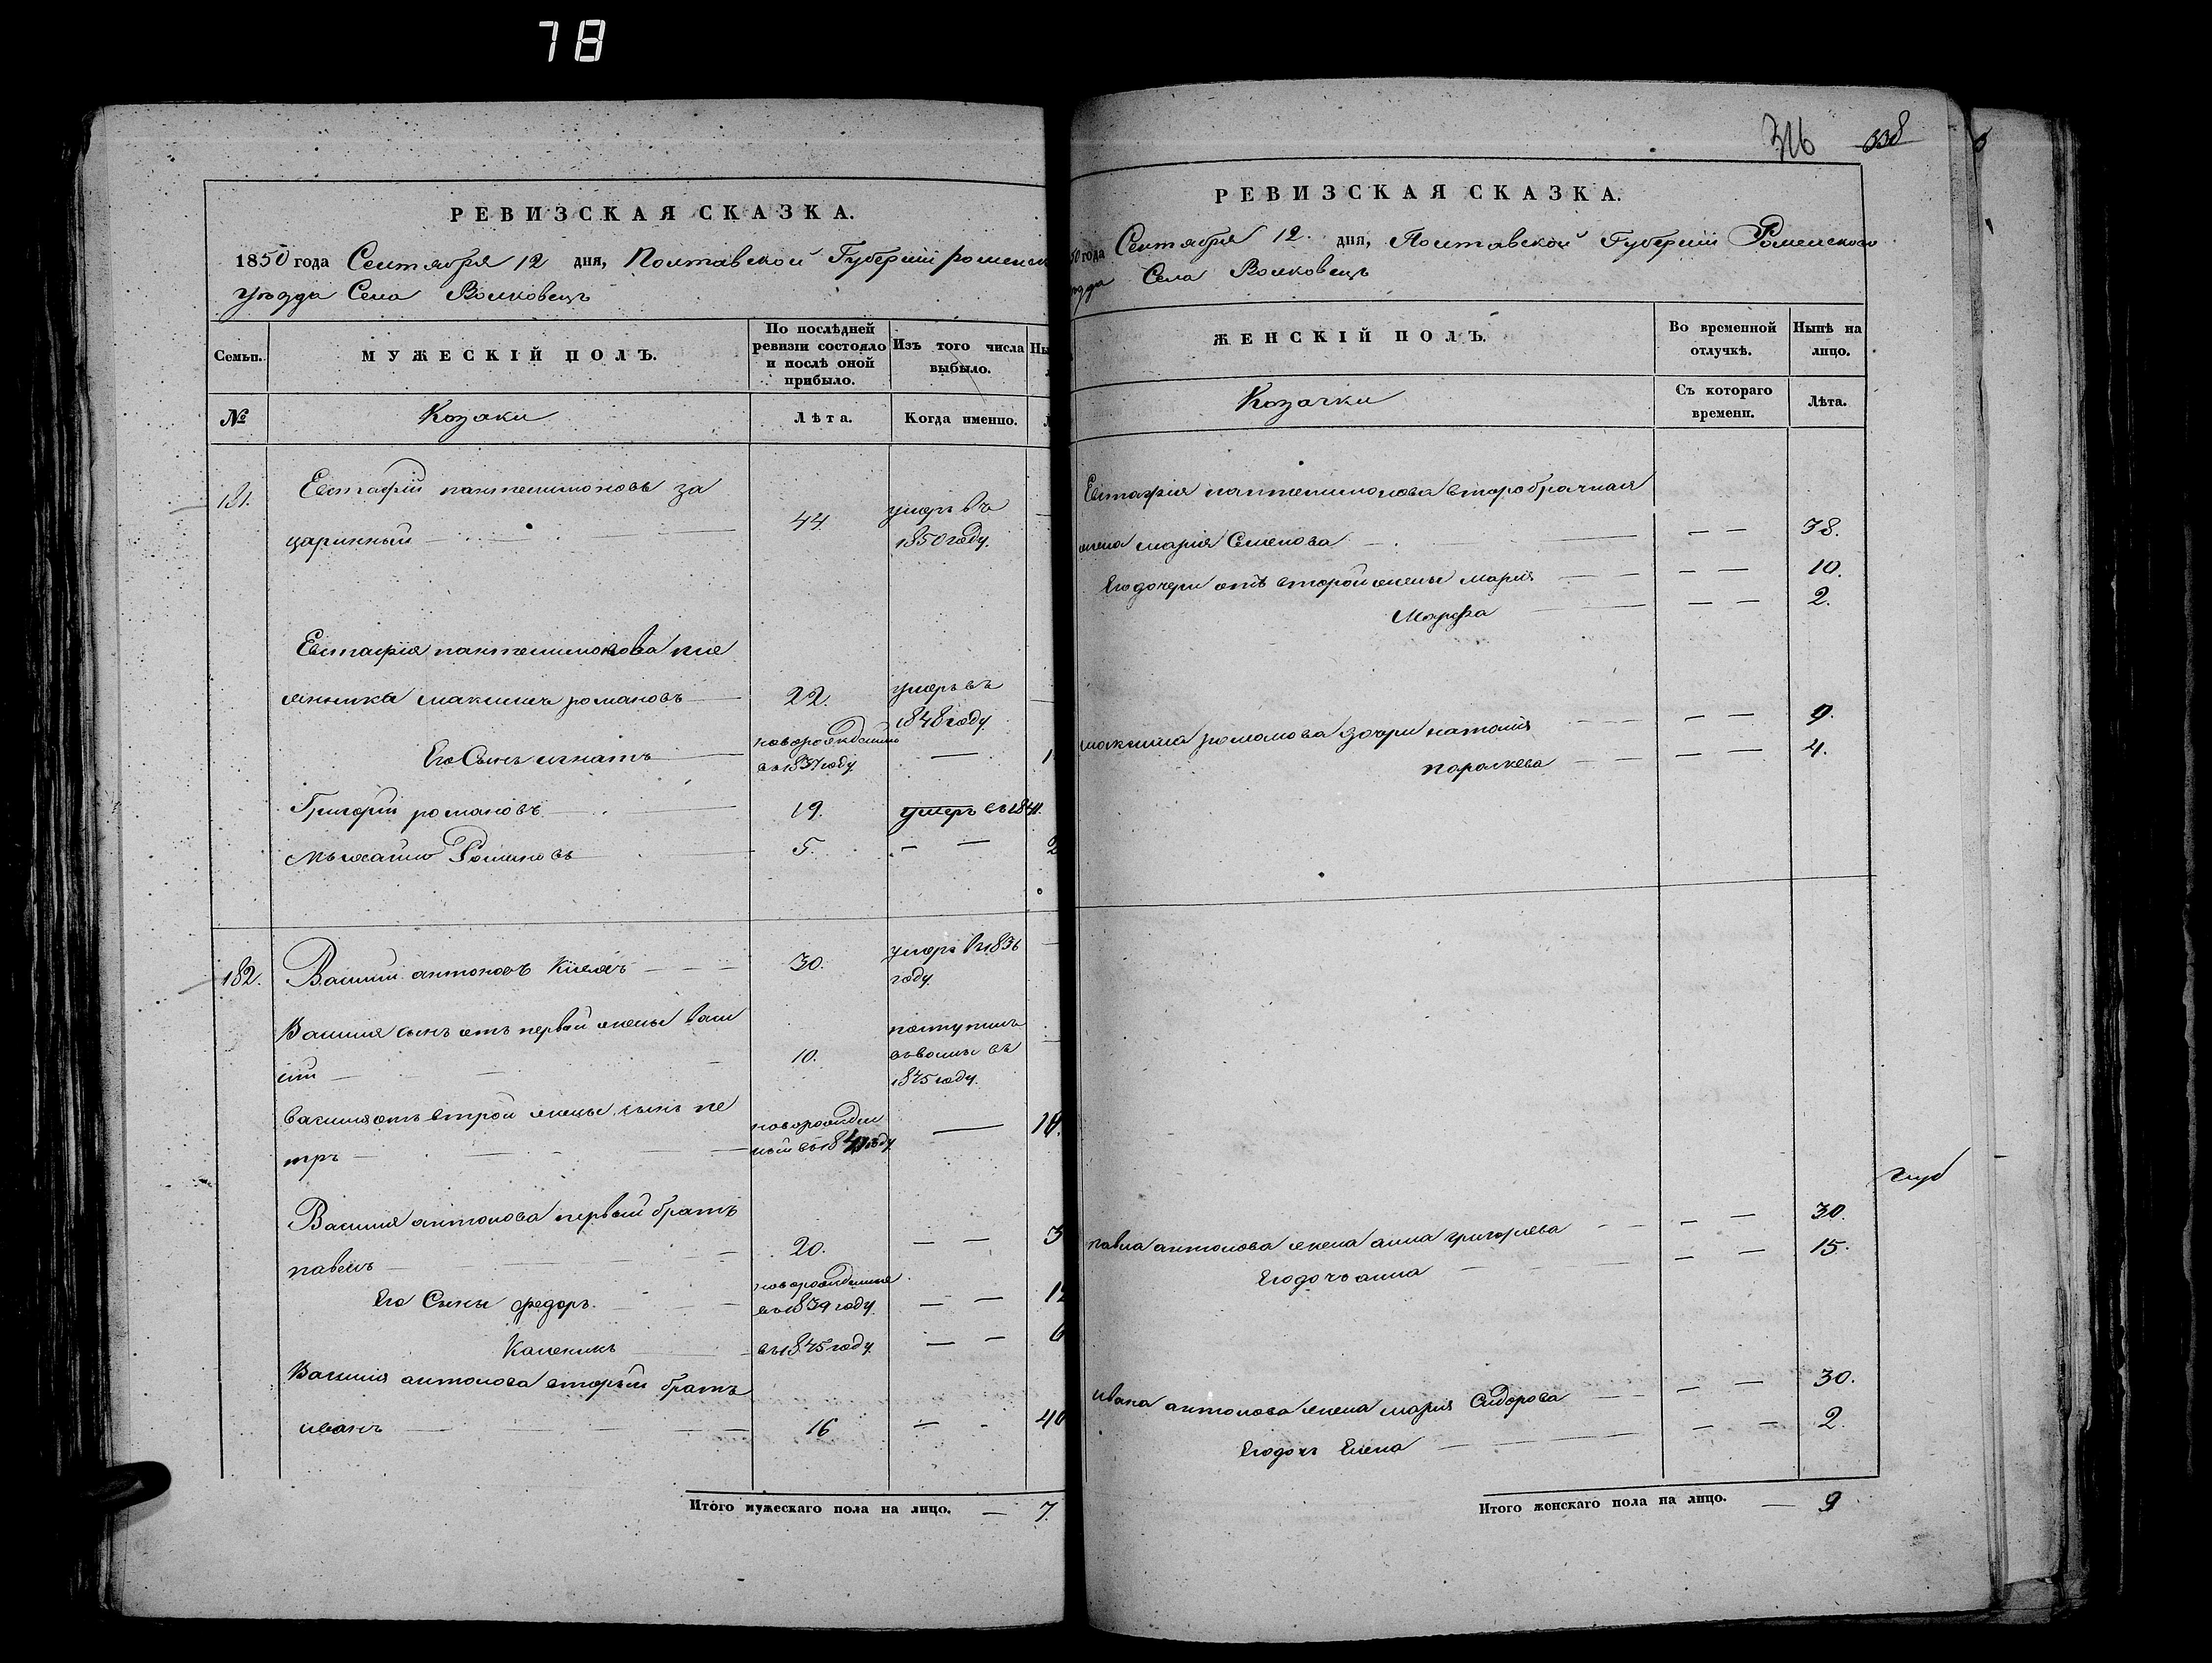 78
РЕВИЗСКАЯ СКАЗКА.
1850 года Сентября 12 дня, Полтавской Губерніи роменск
уѣзда Села Волковецъ
Семьи.
МУЖЕСКІЙ ПОЛЪ.
По послѣдней ревизіи состояло и послѣ оной прибыло.
Изъ того числа выбыло.
Ны
№
Козаки
Лѣта.
Когда именно.
181.
Евстафій пантелимоновъ за
царинный
44.
умеръ въ
1850 году.
Евстафія пантелимонова пле
мянника максимъ романовъ
22.
умеръ въ
1848 году.
Его Сынъ игнатъ
новорожденный
въ 1837 году
1
Григорій романовъ
19.
умеръ въ 1841.
Михайло Романовъ
5.
2
182.
Василій антоновъ
30.
умеръ въ 1836
году.
Василія сынъ отъ первой жены васи
лій
10.
поступилъ
въ
1845 году.
василія отъ второй жены сынъ пе
тръ
новорожден
ный въ 184 году
10.
Василія антонова первый братъ
павелъ
20.
3
Его Сыны федоръ
новорожденные
въ 1839 году.
12
Каленикъ
въ 1845 году.
6
Василія антонова вторый братъ
иванъ
16
40
Итого мужескаго пола на лицо. — 7.
316 338
РЕВИЗСКАЯ СКАЗКА.
50 года Сентября 12 дня, Полтавской Губерніи Роменского
ѣзда Села Волковецъ
ЖЕНСКІЙ ПОЛЪ.
Во временной отлучкѣ.
Нынѣ на лицо.
Козачки
Съ котораго времени.
Лѣта.
Евстафія пантелимонова второбрачная
жена марія Семенова
38.
Его дочери отъ второй жены марія
10.
Марфа
2.
максима романова дочери наталія
9.
параскева
4.
павла антонова жена анна григорьева
30.
Его дочь анна
15.
ивана антонова жена марія Сидорова
30.
Его дочь Елена
2.
Итого женскаго пола на лицо. — 9